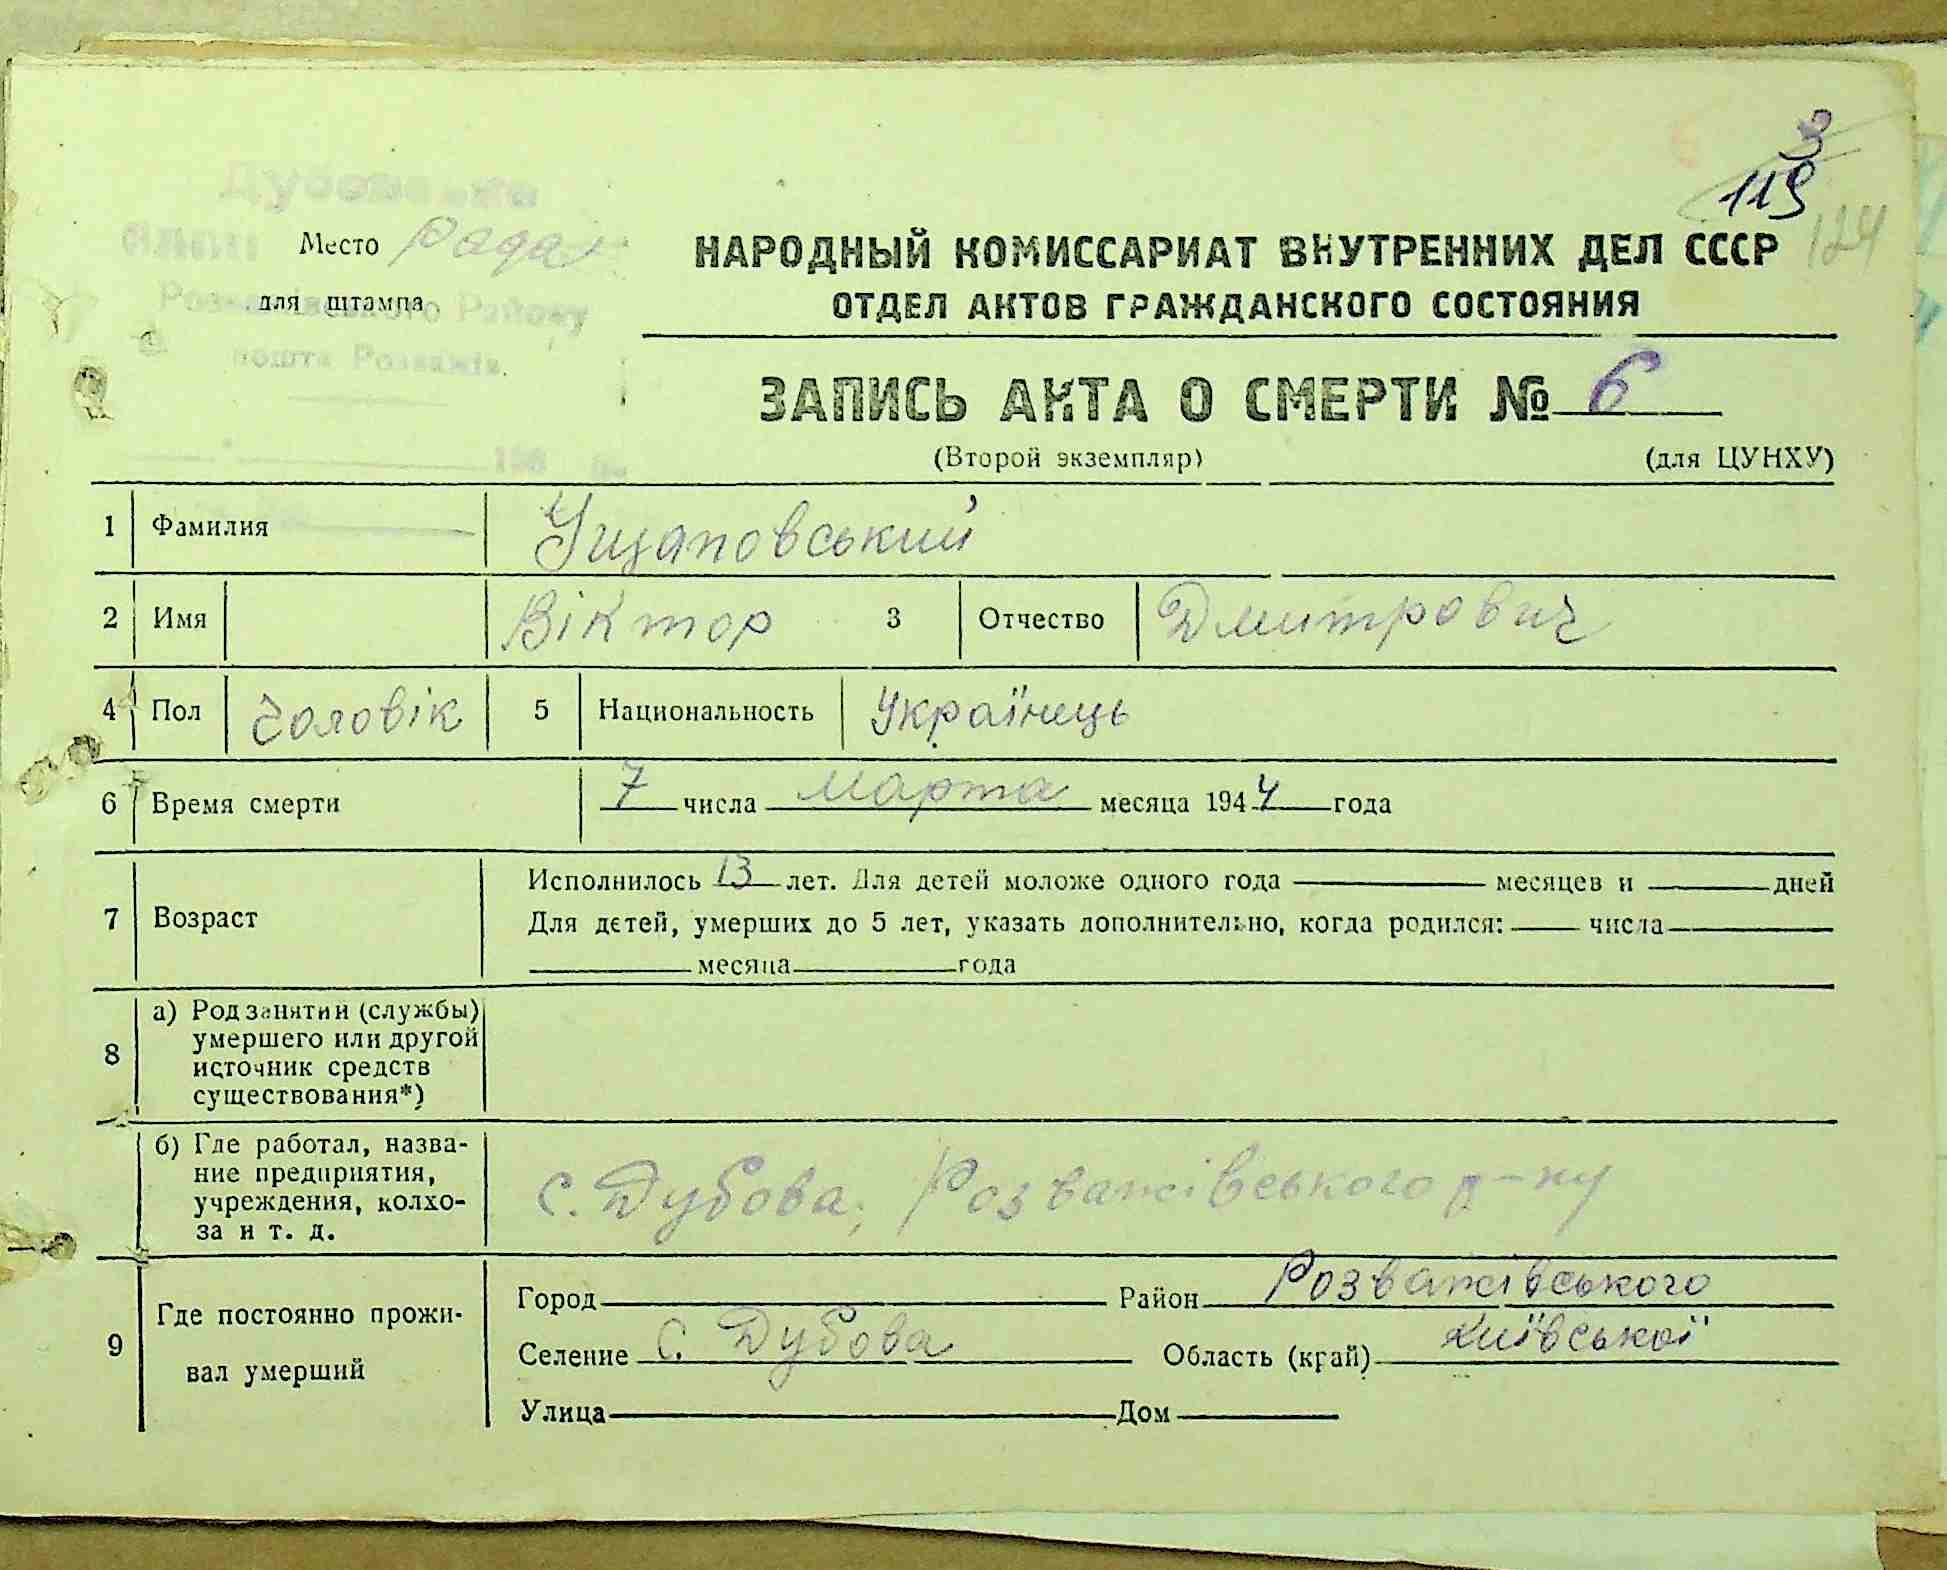 3
119
124
Место Рада
для штампа
Розважівського Району
пошта Розважів
НАРОДНЫЙ КОМИССАРИАТ ВНУТРЕННИХ ДЕЛ СССР
ОТДЕЛ АКТОВ ГРАЖДАНСКОГО СОСТОЯНИЯ
ЗАПИСЬ АКТА О СМЕРТИ № 6
(Второй экземпляр) (для ЦУНХУ)
1 Фамилия Ущаповський
2 Имя Віктор 3 Отчество Дмитрович
4 Пол Чоловік 5 Национальность Українець
6 Время смерти 7 числа марта месяца 1944 года
Исполнилось 13 лет. Для детей моложе одного года месяцев и дней
7 Возраст Для детей, умерших до 5 лет, указать дополнительно, когда родился: числа
месяца года
8 а) Род занятий (службы)
умершего или другой
источник средств
существования*)
б) Где работал, назва-
ние предприятия,
учреждения, колхо-
за и т. д.
с. Дубова, Розважівського р-ну
9 Где постоянно прожи-
вал умерший
Город Район Розважівського
Селение с. Дубова Область (край) Київської
Улица Дом